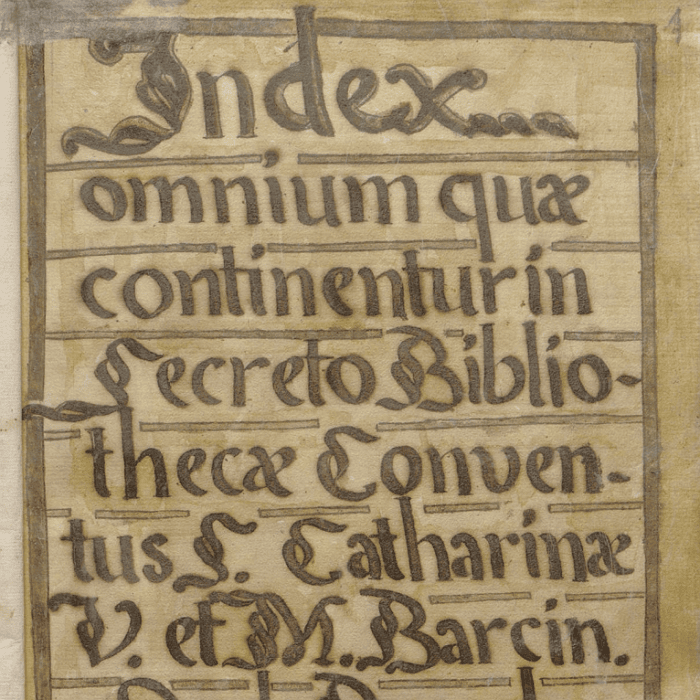 Index
omnium quæ
continentur in
Secreto Biblio-
thecæ Conven-
tus S. Catharinæ
V. et M. Barcin.